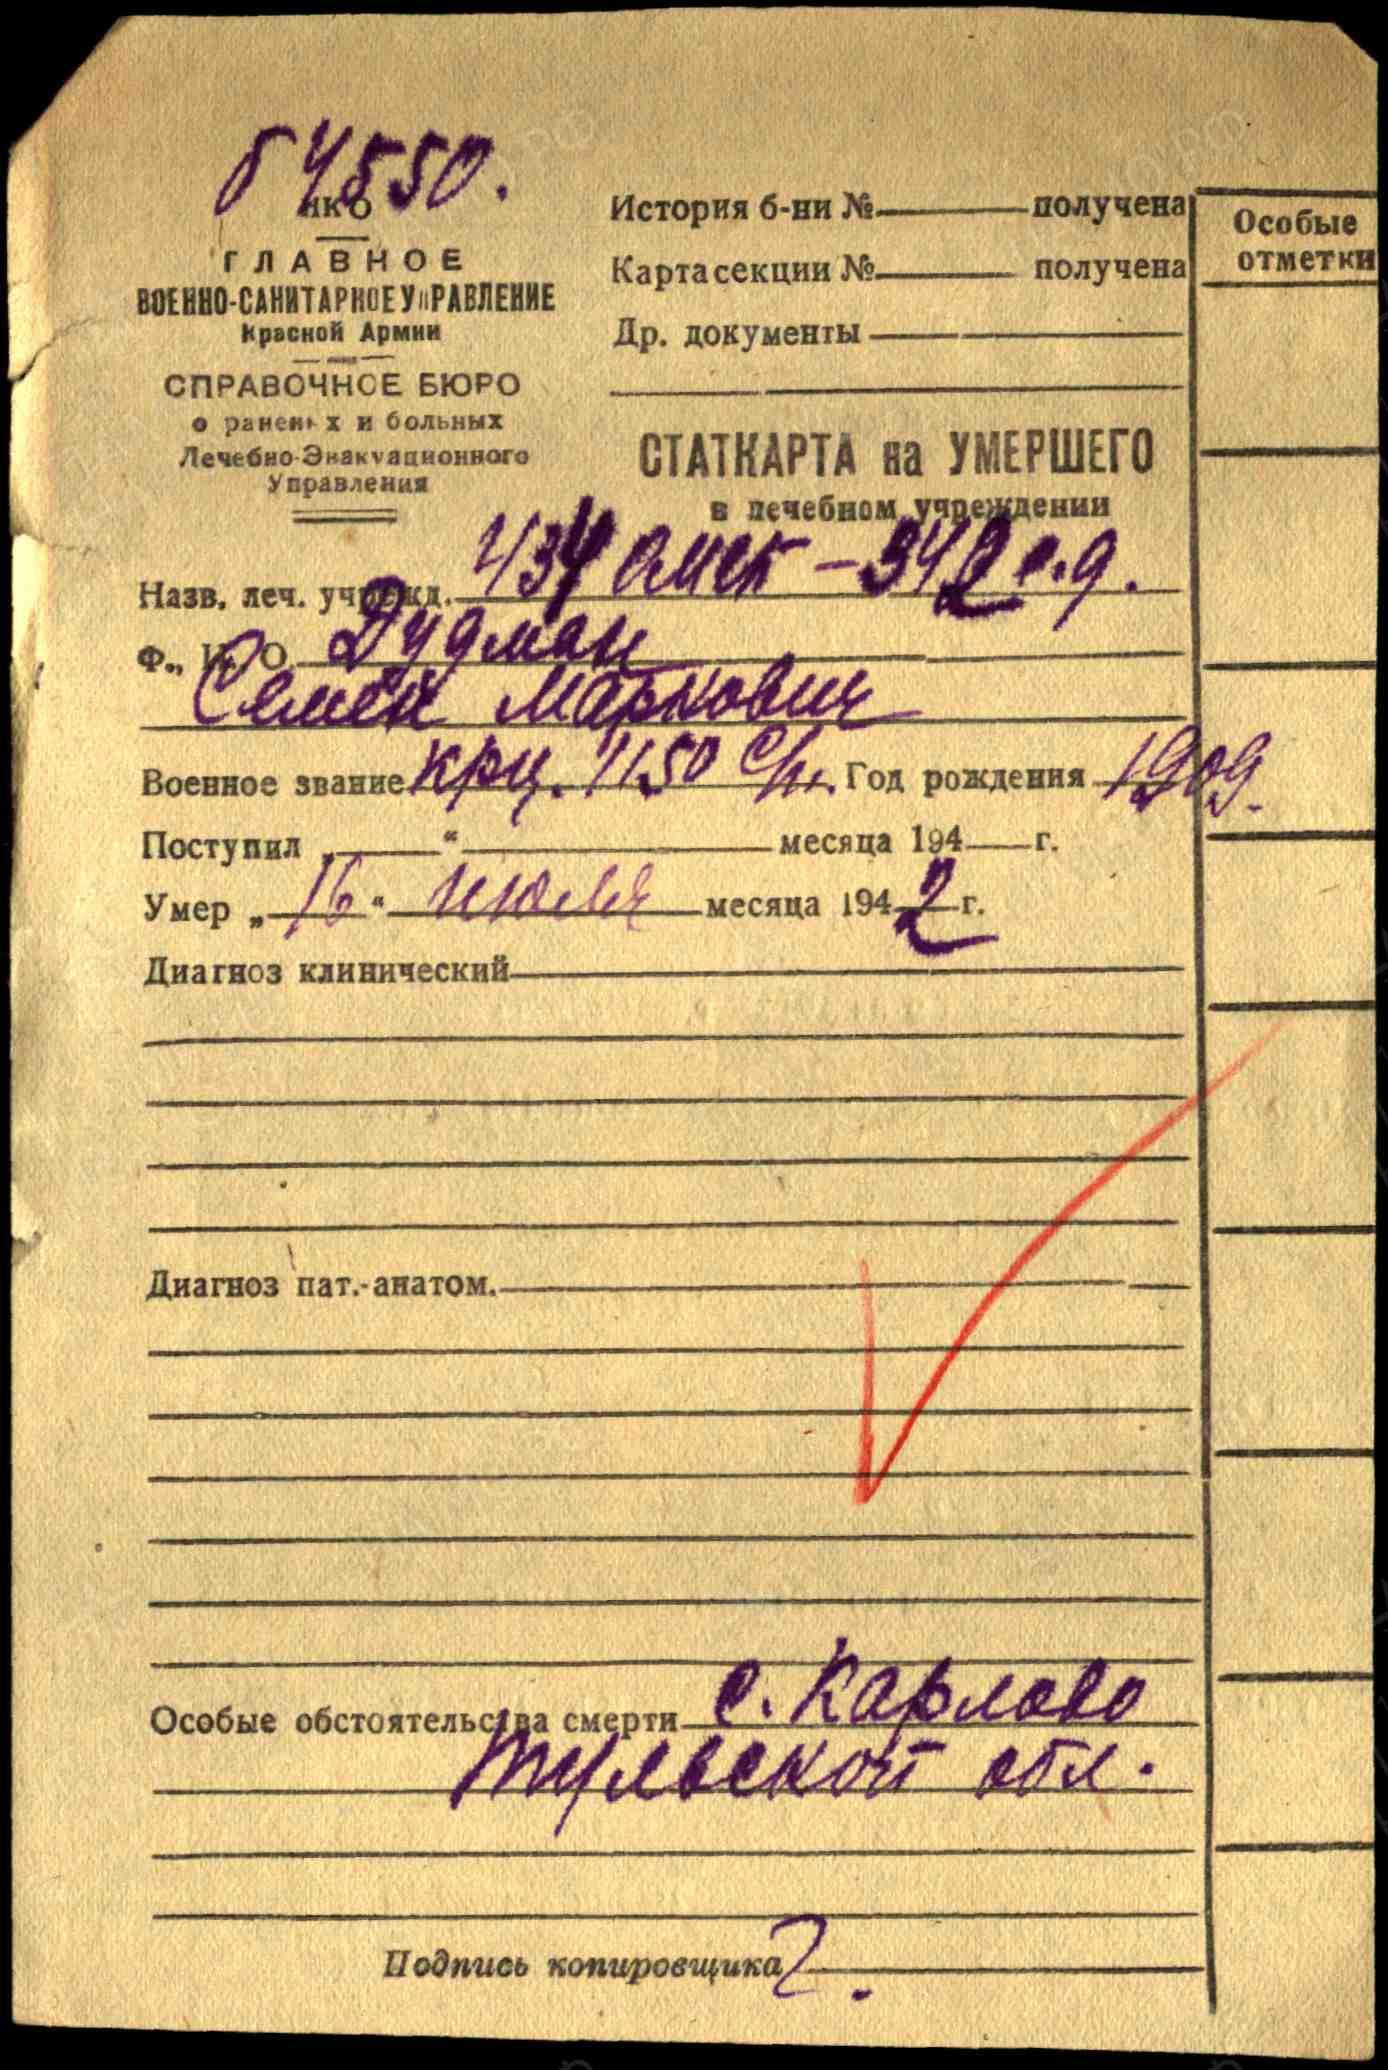 54550.
НКО
ГЛАВНОЕ
ВОЕННО-САНИТАРНОЕ УПРАВЛЕНИЕ
Красной Армии
СПРАВОЧНОЕ БЮРО
о раненых и больных
Лечебно-Эвакуационного
Управления
История б-ни № получена
Карта секции № получена
Др. документы
Особые
отметки
СТАТКАРТА на УМЕРШЕГО
в лечебном учреждении
Назв. леч. учрежд. 434 омсб - 342 с.д.
Ф., И. О. Дудман
Семен Маркович
Военное звание крц. 1150 с/п. Год рождения 1909.
Поступил „ “ месяца 194 г.
Умер „16“ июля месяца 1942 г.
Диагноз клинический
Диагноз пат.-анатом.
Особые обстоятельства смерти с. Карлово
Тульской обл.
Подпись копировщика